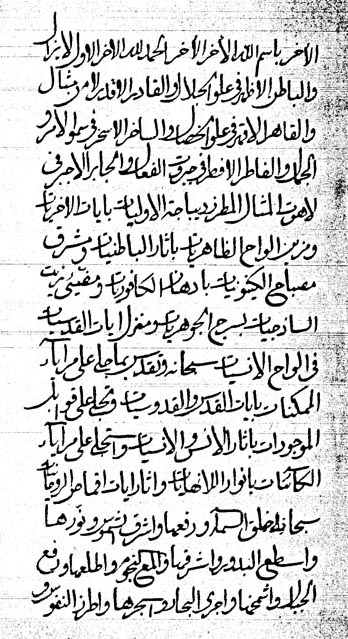 الآخر باسم الله الآخر الآخر الحمد لله الآخر الاول الازل
والباطن الاظهر فى علو الجلال والقادر الاقدر من مثال
والقاهر الاقهر فى علو الجلال والساخر الاسخر فى سمو الامر و
الجمال والفاطر الافطر فى جبروت الفعال والجابر الاجبر فى
لاهوت المثال المطرز ديباجة الاوليات بايات الآخريات
ومزين الواح الظاهريات باثار الباطنيات ومشرق
مصباح الكينونيات بادهان الكافوريات ومضيئ زيت
الساذجيات بسرج الجوهريات ومنزل ايات القدسيات
فى الواح الانسيات سبحانه وتقدس تجلى على مرايآء
الممكنات بايات القدس والقدوسيات وتجلى على قوابل
الموجودات باثار الانس والانسيات وتجلى على مرايآء
الكائنات بانوار اللانهايات واثار ايات
سبحانه خلق السمآء ورفعها واشرق شمس ونورها
واسطع البدور واشرقها والمع النجوم واطلعها ورفع
الجبال واشمخها واجرى البحار وسجرها واطرز النفوس و